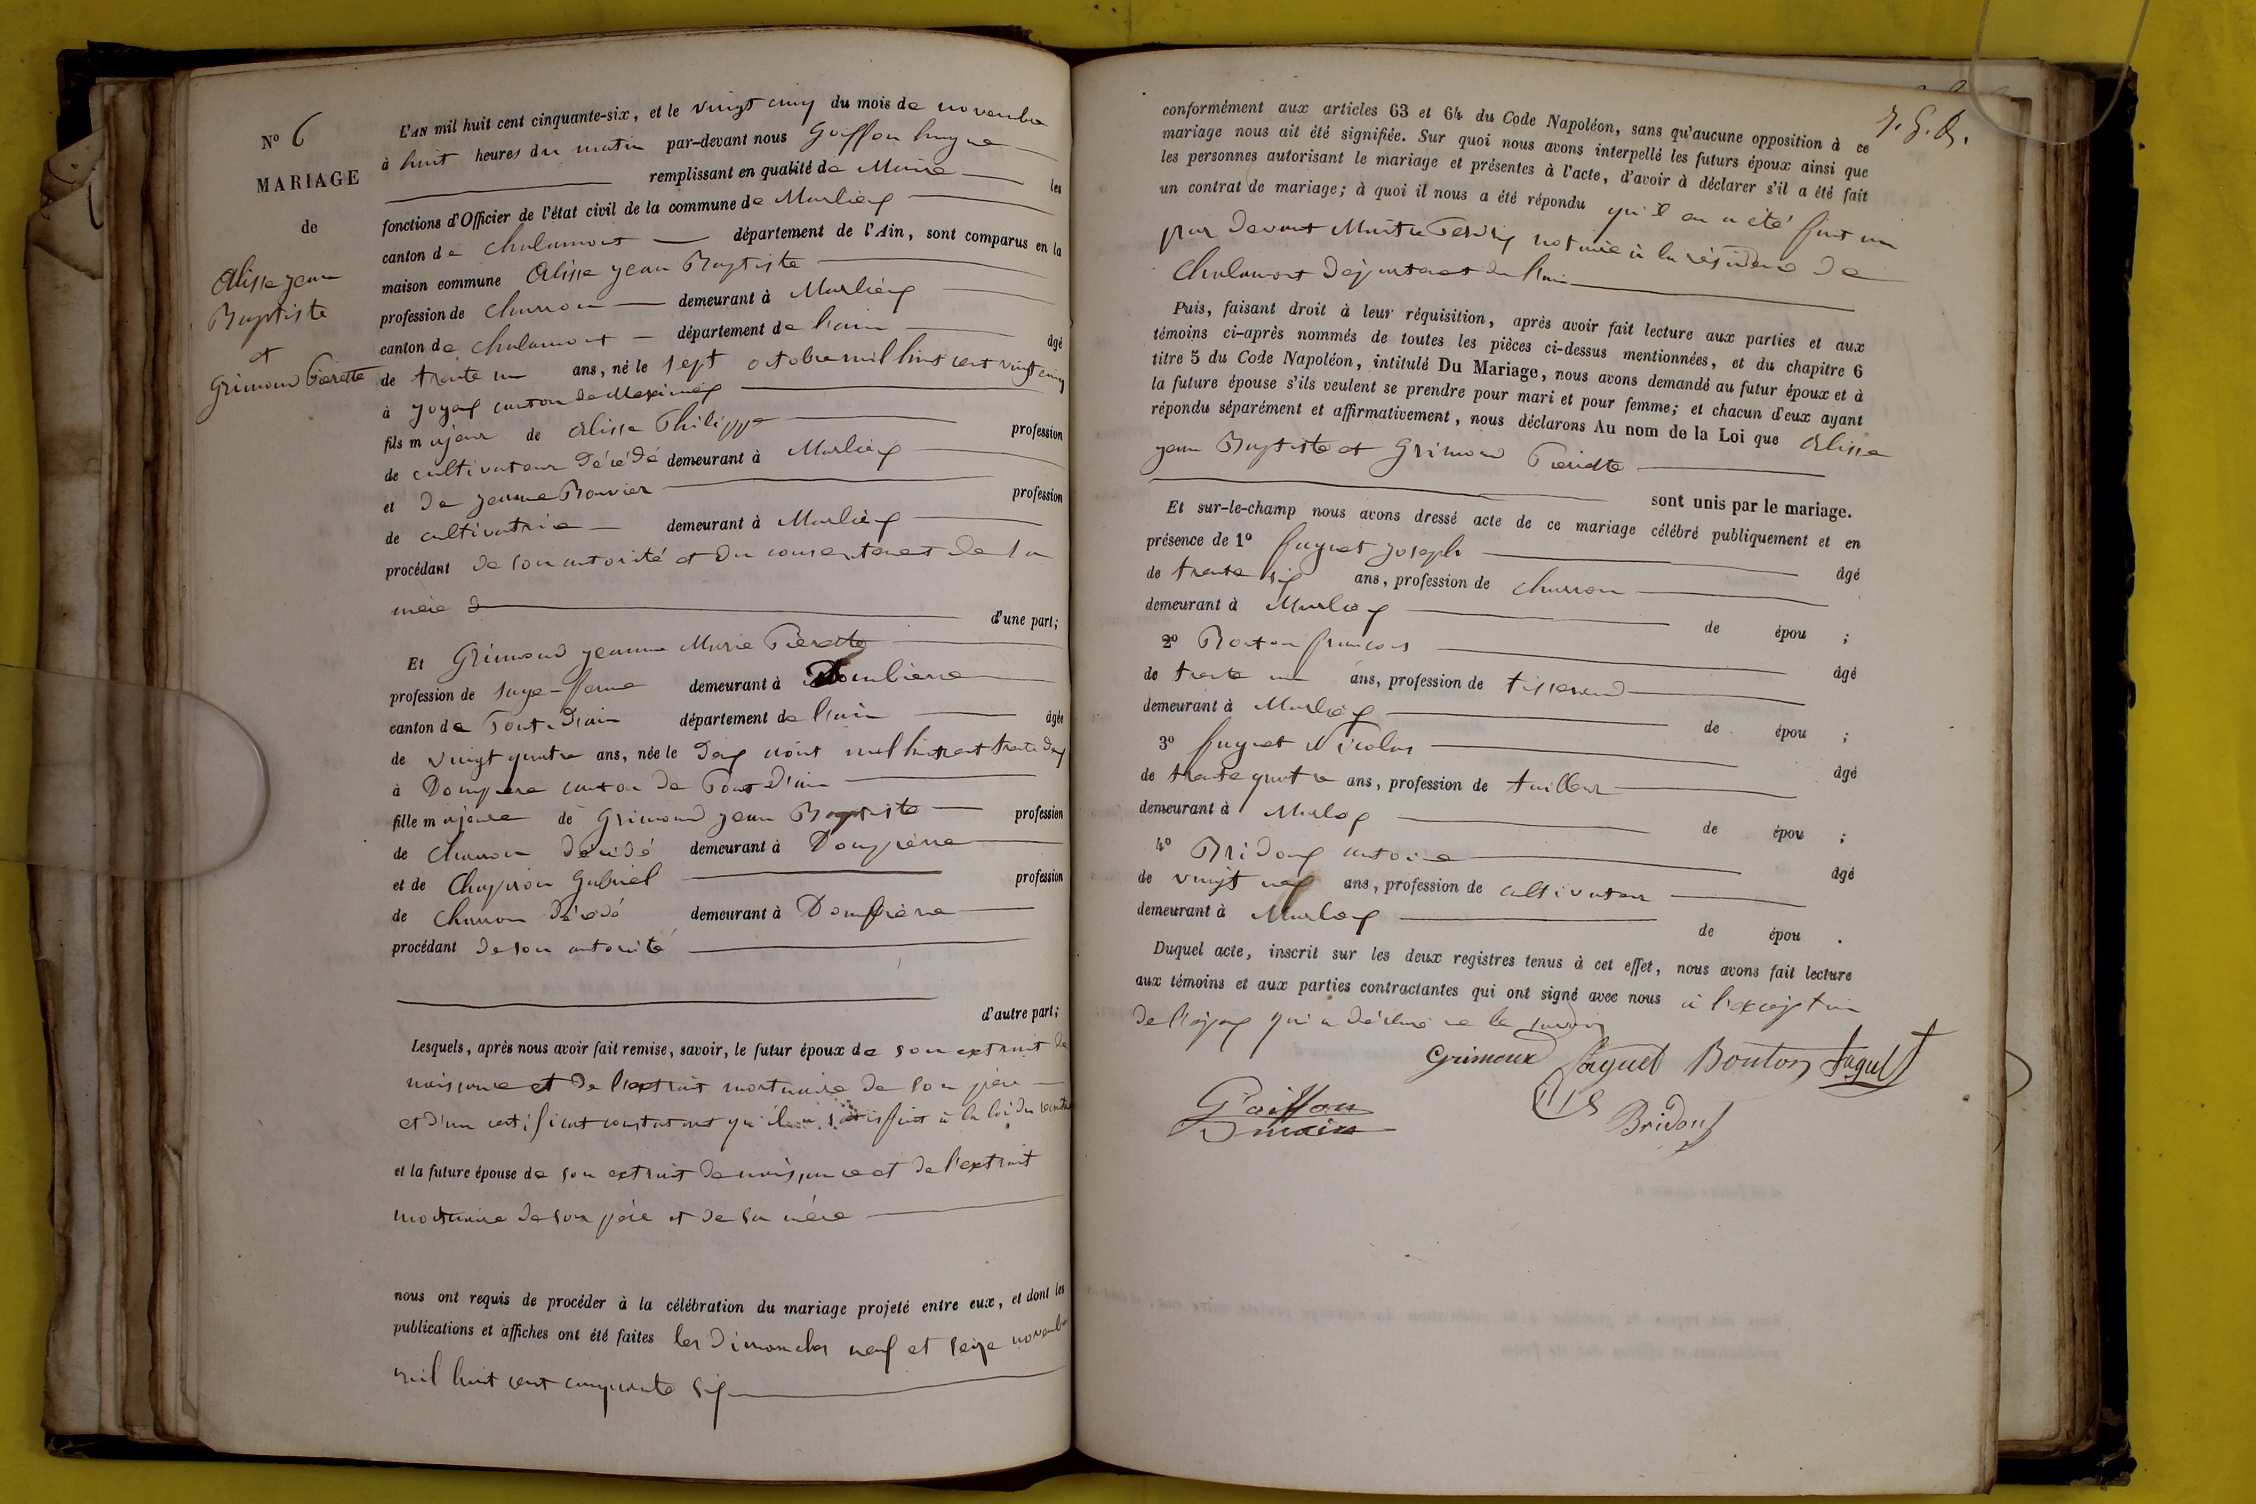 N° 6
MARIAGE
de
Alisse jean
Baptiste
et
Grimoud Pierette
L'AN mil huit cent cinquante-six, et le vingt cinq du mois de novembre
à huit heures du matin par-devant nous Goiffon
remplissant en qualité de Maire les
fonctions d'Officier de l'état civil de la commune de Marlieux
canton de chalamont département de l'Ain, sont comparus en la
maison commune Alisse jean Baptiste
profession de charron demeurant à Marlieux
canton de chalamont département de l'ain âgé
de trente un ans, né le sept octobre mil huit cent vingt cinq
à joyeux canton de Meximieux
fils majeur de Alisse Philippe profession
de cultivateur décédé demeurant à Marlieux
et de jeanne Bouvier profession
de cultivatrice demeurant à Marlieux
procédant de son autorité et du consentement de sa
mère d'une part;
Et Grimoud jeanne Marie Pierette
profession de sage-feme demeurant à
canton de Pont d'ain département de l'ain âgée
de vingt quatre ans, née le dix août mil huit cent trente deux
à Dompiere canton de Pont d'ain
fille majeure de Grimoud jean Baptiste profession
de charron décédé demeurant à Dompierre
et de Chapiron Gabriel profession
de charron décédé demeurant à Dompierre
procédant de son autorité
d'autre part;
Lesquels, après nous avoir fait remise, savoir, le futur époux de son extrait de
naissance et de l'extrait mortuaire de son père
et d'un certificat constatant qu'il a satisfait à la loi du
et la future épouse de son extrait de naissance et de l'extrait
mortuaire de son père et de sa mère
nous ont requis de procéder à la célébration du mariage projeté entre eux, et dont les
publications et affiches ont été faites les dimanches neuf et seize novembre
mil huit cent cinquante six
conformément aux articles 63 et 64 du Code Napoléon, sans qu'aucune opposition à ce
mariage nous ait été signifiée. Sur quoi nous avons interpellé les futurs époux ainsi que
les personnes autorisant le mariage et présentes à l'acte, d'avoir à déclarer s'il a été fait
un contrat de mariage; à quoi il nous a été répondu qu'il en a été fait un
par devant Maître notaire à la résidence de
Chalamont département de l'ain
Puis, faisant droit à leur réquisition, après avoir fait lecture aux parties et aux
témoins ci-après nommés de toutes les pièces ci-dessus mentionnées, et du chapitre 6
titre 5 du Code Napoléon, intitulé Du Mariage, nous avons demandé au futur époux et à
la future épouse s'ils veulent se prendre pour mari et pour femme; et chacun d'eux ayant
répondu séparément et affirmativement, nous déclarons Au nom de la Loi que Alisse
jean Baptiste et Grimoud Pierette
sont unis par le mariage.
Et sur-le-champ nous avons dressé acte de ce mariage célébré publiquement et en
présence de 1° faguet joseph âgé
de trente six ans, profession de charron
demeurant à Marlieux de épou ;
2° Bouton francois âgé
de trente un ans, profession de tisserand
demeurant à Marlieux de épou ;
3° faguet Nicolas âgé
de trente quatre ans, profession de tailleur
demeurant à Marlieux de épou ;
4° Bridon antoine âgé
de vingt neuf ans, profession de cultivateur
demeurant à Marlieux de épou .
Duquel acte, inscrit sur les deux registres tenus à cet effet, nous avons fait lecture
aux témoins et aux parties contractantes qui ont signé avec nous à l'exception
de l'époux qui a déclaré ne le savoir
Grimoud faguet Bouton faguet
Goiffon
maire
Bridon